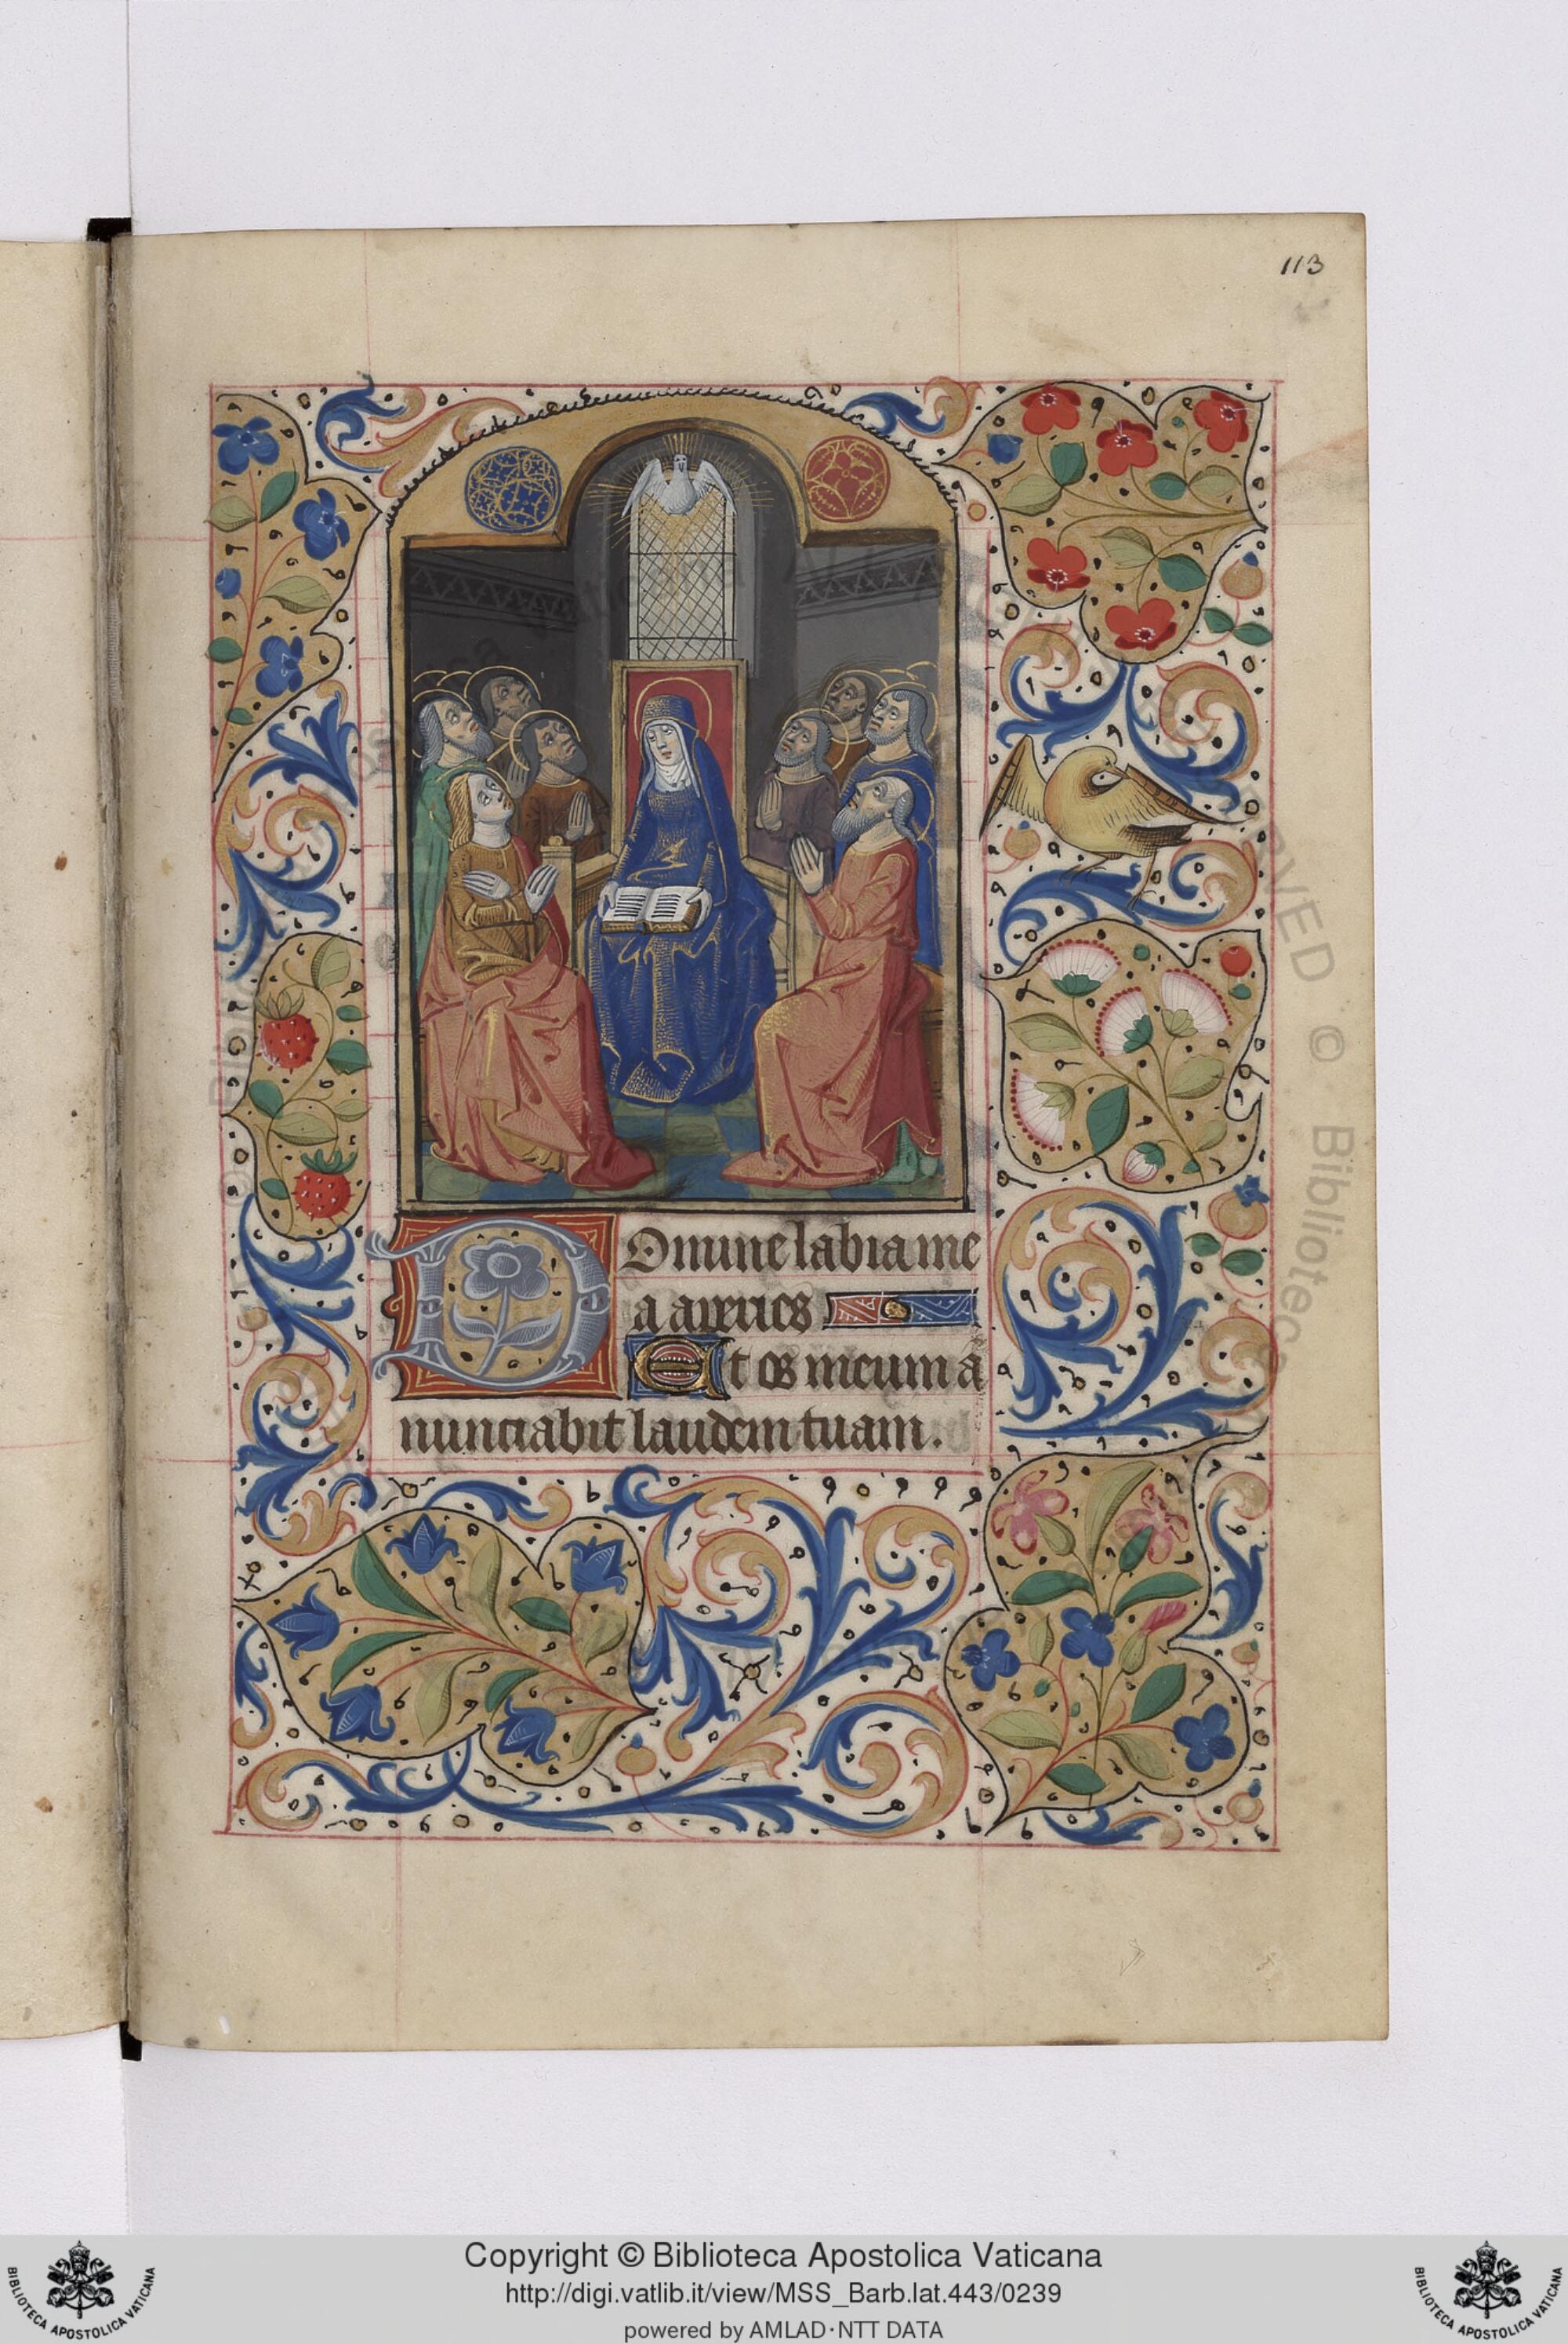 113
Domine labia me
a aperies
Et os meum a
nunciabit laudem tuam.
Copyright © Biblioteca Apostolica Vaticana
http://digi.vatlib.it/view/MSS_Barb.lat.443/0239
powered by AMLAD·NTT DATA
BIBLIOTECA APOSTOLICA VATICANA
BIBLIOTECA APOSTOLICA VATICANA